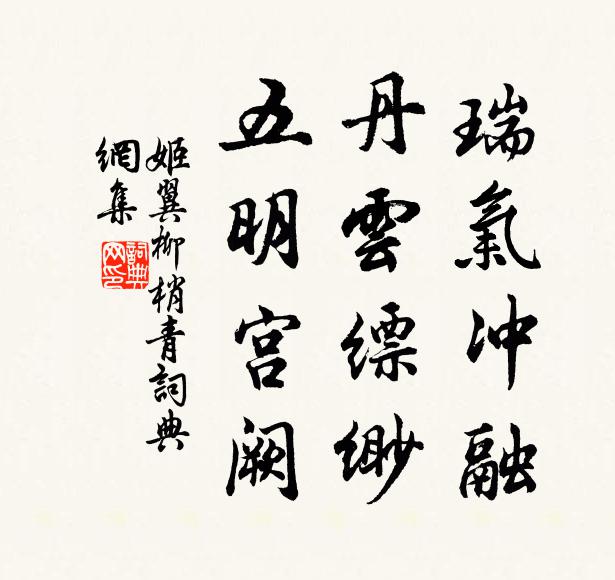 瑞氣冲融
丹雲缥緲
五明宫阙
姬翼柳梢青詞典
網集
詞典
网印